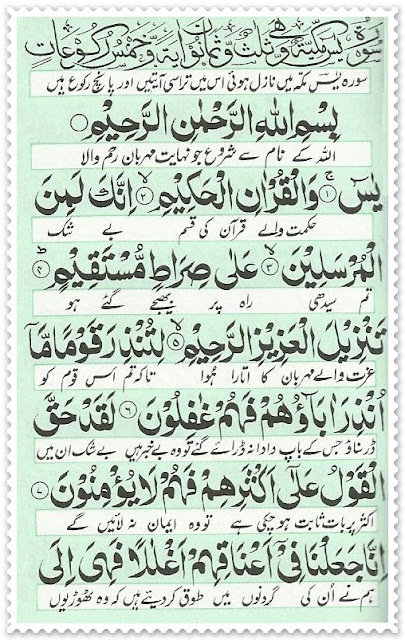 سورۃ یٰسٓ مکیۃ وھی ثلث وثمانون اٰیۃ وخمس رکوعات
سورہ یٰسٓ مکہ میں نازل ہوئی اس میں تراسی آیتیں اور پانچ رکوع ہیں
بِسْمِ اللّٰهِ الرَّحْمٰنِ الرَّحِيْمِ ○
اللہ کے نام سے شروع جو نہایت مہربان رحم والا
يٰسٓ ۚ﴿۱﴾ وَالْقُرْاٰنِ الْحَكِيْمِ ۙ﴿۲﴾ اِنَّكَ لَمِنَ
حکمت والے قرآن کی قسم بے شک
الْمُرْسَلِيْنَ ۙ﴿۳﴾ عَلٰى صِرَاطٍ مُّسْتَقِيْمٍ ؕ﴿۴﴾
تم سیدھی راہ پر بھیجے گئے ہو
تَنْزِيْلَ الْعَزِيْزِ الرَّحِيْمِ ۙ﴿۵﴾ لِتُنْذِرَ قَوْمًا مَّاۤ
عزت والے مہربان کا اتارا ہوا تاکہ تم اس قوم کو
اُنْذِرَ اٰبَآؤُهُمْ فَهُمْ غٰفِلُوْنَ ﴿۶﴾ لَقَدْ حَقَّ
ڈر سناؤ جس کے باپ دادا نہ ڈرائے گئے تو وہ بے خبر ہیں بے شک ان میں
الْقَوْلُ عَلٰۤى اَكْثَرِهِمْ فَهُمْ لَا يُؤْمِنُوْنَ ﴿۷﴾
اکثر پر بات ثابت ہو چکی ہے تو وہ ایمان نہ لائیں گے
اِنَّا جَعَلْنَا فِيْۤ اَعْنَاقِهِمْ اَغْلٰلًا فَهِيَ اِلَى
ہم نے اُن کی گردنوں میں طوق کر دیئے ہیں کہ وہ ٹھوڑیوں